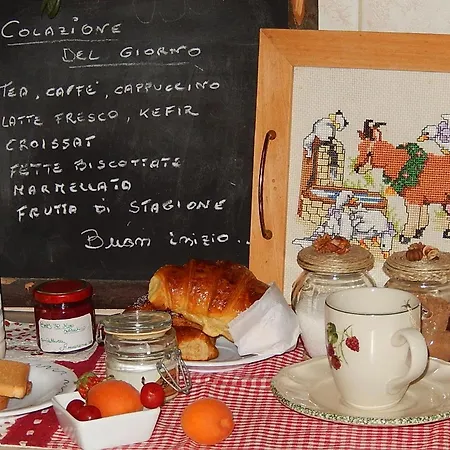 COLAZIONE
DEL GIORNO
TEA, CAFFE', CAPPUCCINO
LATTE FRESCO, KEFIR
CROISSAT
FETTE BISCOTTATE
MARMELLATA
FRUTTA DI STAGIONE
Buon inizio...